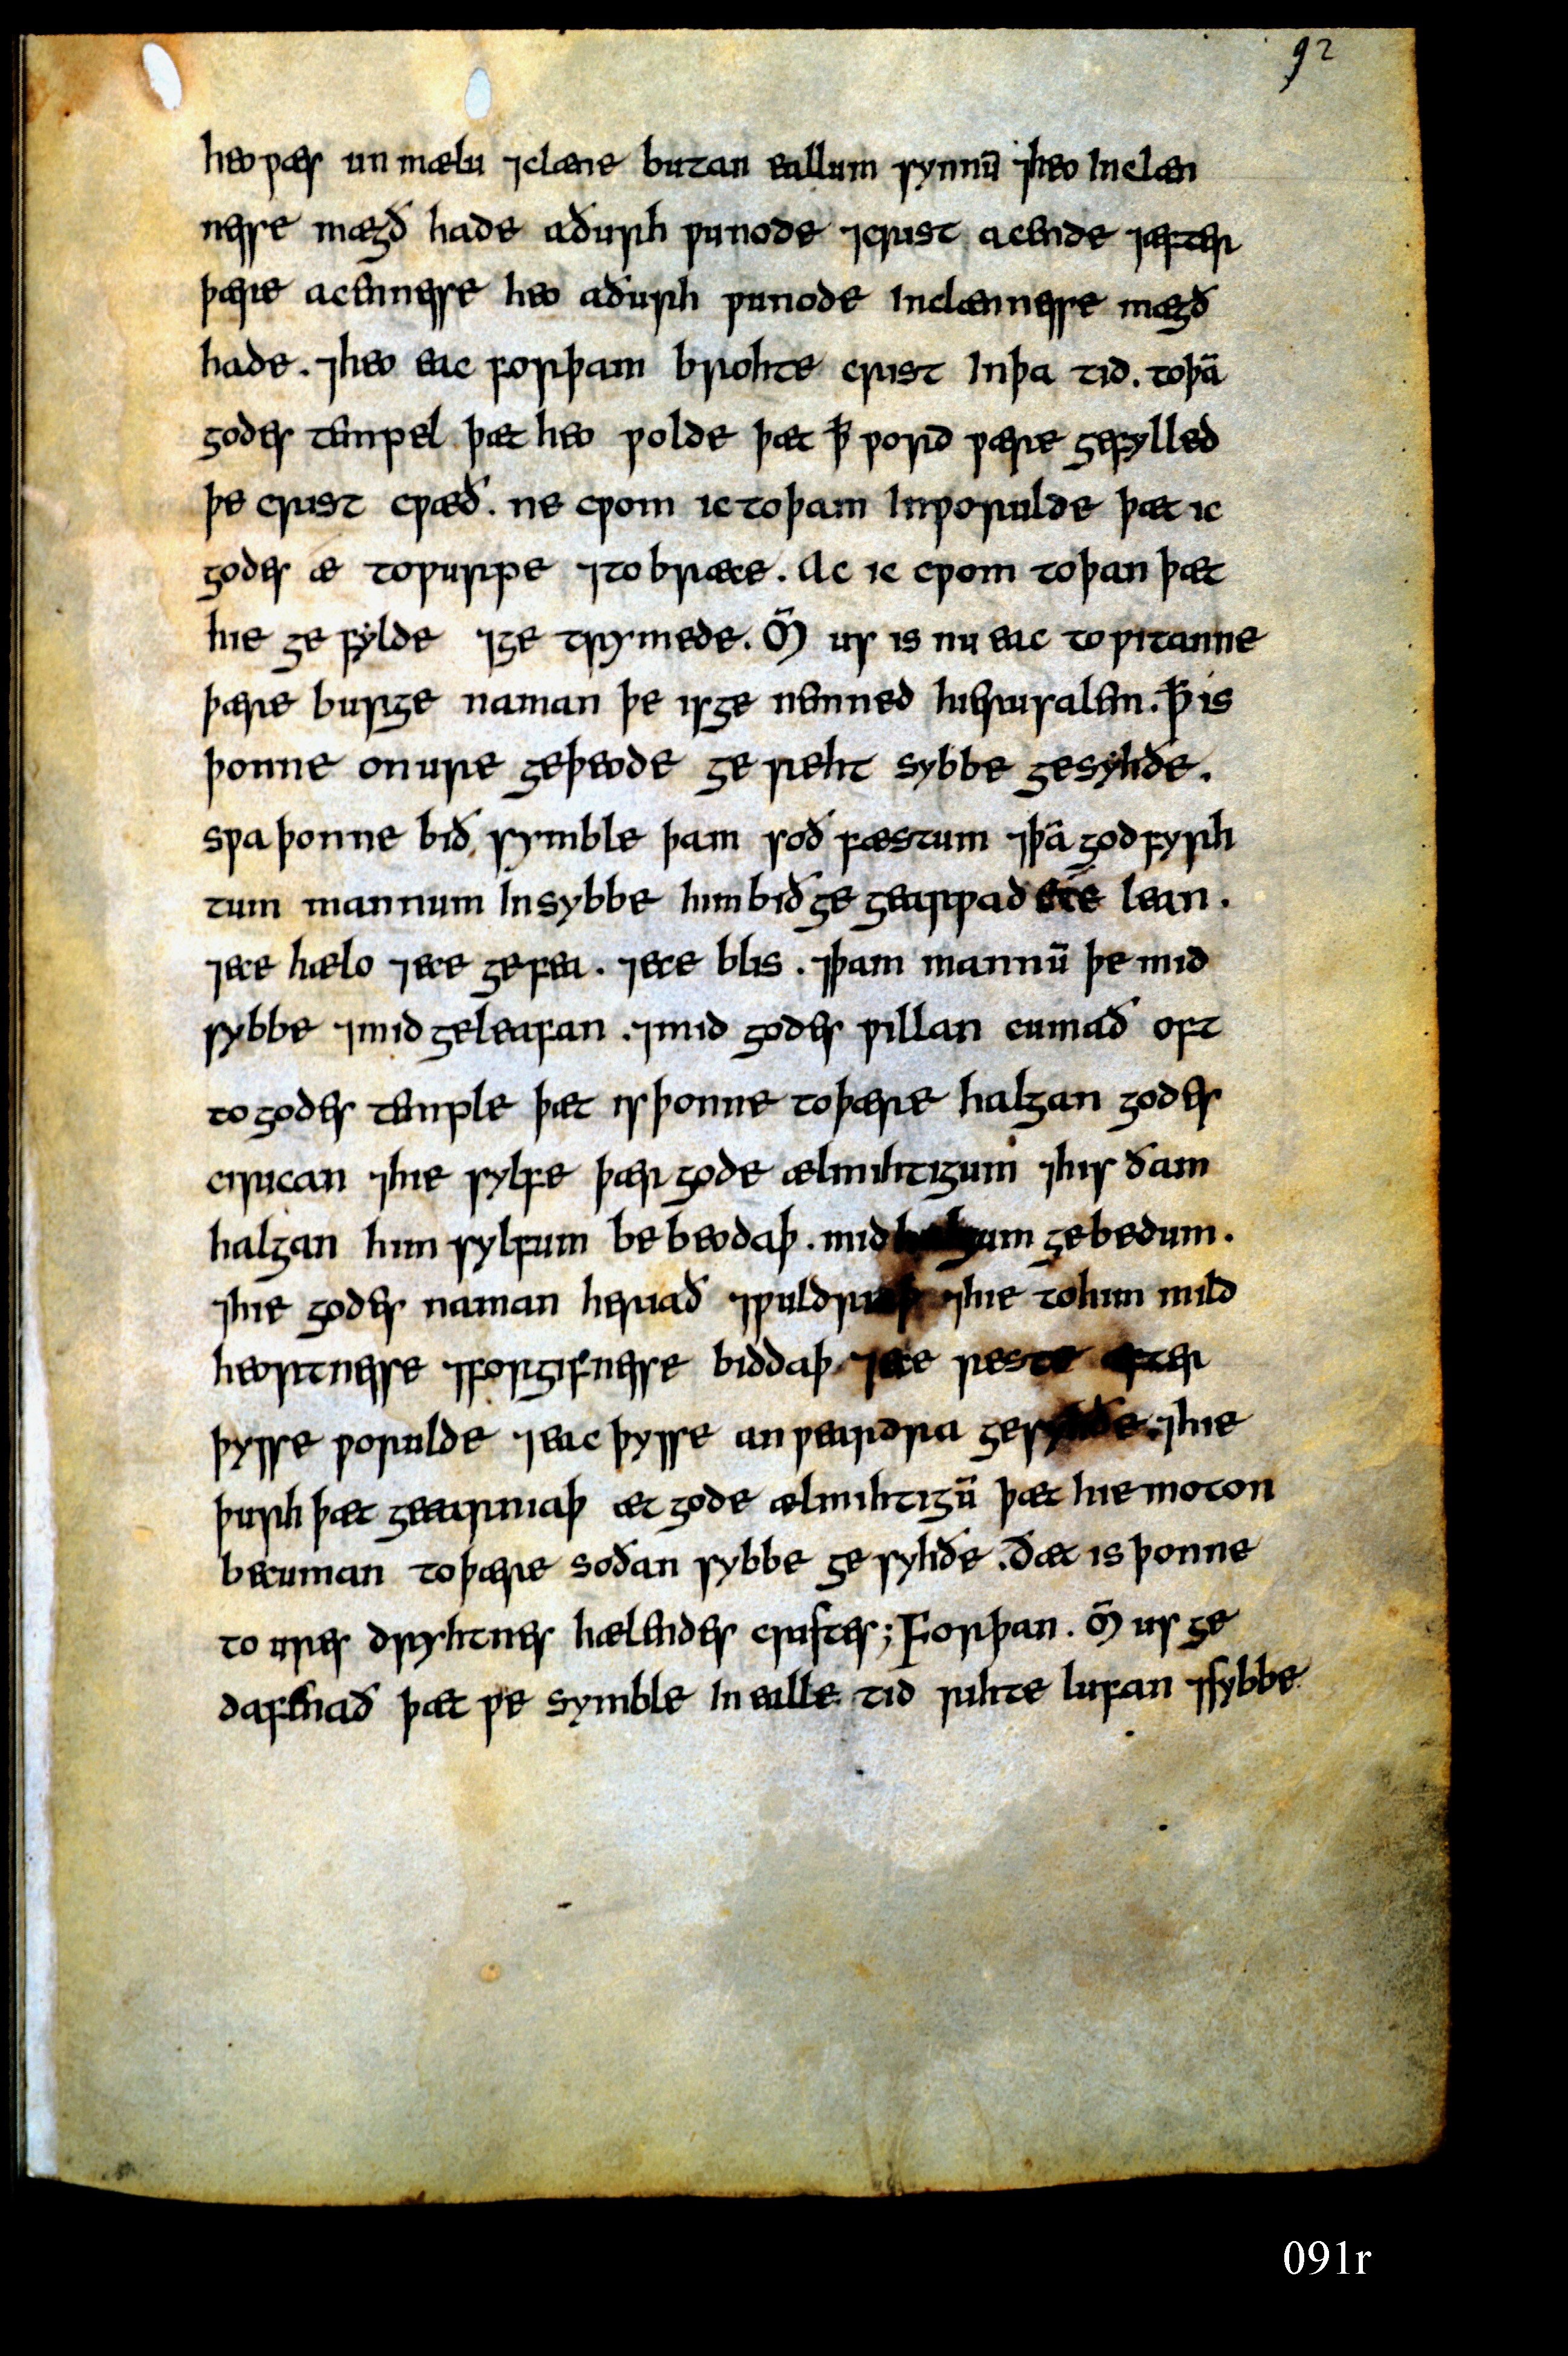 92
heo ƿæs un mælu ⁊clæne butan eallum synnū ⁊heo Inclæn
nesse mægð hade aðurh ƿunode ⁊crist acende ⁊æfter
þære acennesse heo aðurh ƿunode Inclænnesse mægð
hade. ⁊heo eac forþam brohte crist Inþa tid. toþā
godes tempel þæt heo ƿolde þæt ꝥ ƿord ƿære gefylled
þe crist cƿæð. ne cƿom ic toþam Inƿorulde þæt ic
godes æ toƿurpe ⁊tobræce. Ac ic cƿom toþan þæt
hie ge fylde ⁊ge trymede. M̄ us is nu eac to ƿitanne
þære burge naman þe isge nemned hierusalem. ꝥ is
þonne onure geþeode ge reht sybbe gesyhðe.
sƿa þonne bið symble þam soð fæstum ⁊þā godfyrh
tum mannum Insybbe him bið ge gearƿad ece lean.
⁊ece hælo ⁊ece gefea. ⁊ece blis. ⁊þam mannū þe mid
sybbe ⁊mid geleafan. ⁊mid godes ƿillan cumað oft
to godes temple þæt is þonne toþære halgan godes
cirican ⁊hie sylfe þær gode ælmihtigum ⁊his ðam
halgan him sylfum be beodaþ. mid halgum gebedum.
⁊hie godes naman heriað ⁊ƿuldriaþ ⁊hie tohim mild
heortnesse ⁊forgifnesse biddaþ ⁊ece reste æfter
þysse ƿorulde ⁊eac þysse anƿeardra gesyhðe. ⁊hie
þurh þæt geearniaþ æt gode ælmihtigū þæt hie moton
becuman toþære soðan sybbe ge syhðe. Ðæt is þonne
to ures dryhtnes hælendes cristes; Forþan. M̄ us ge
dafenað þæt ƿe symble In ealle tid rihte lufan ⁊sybbe
091r